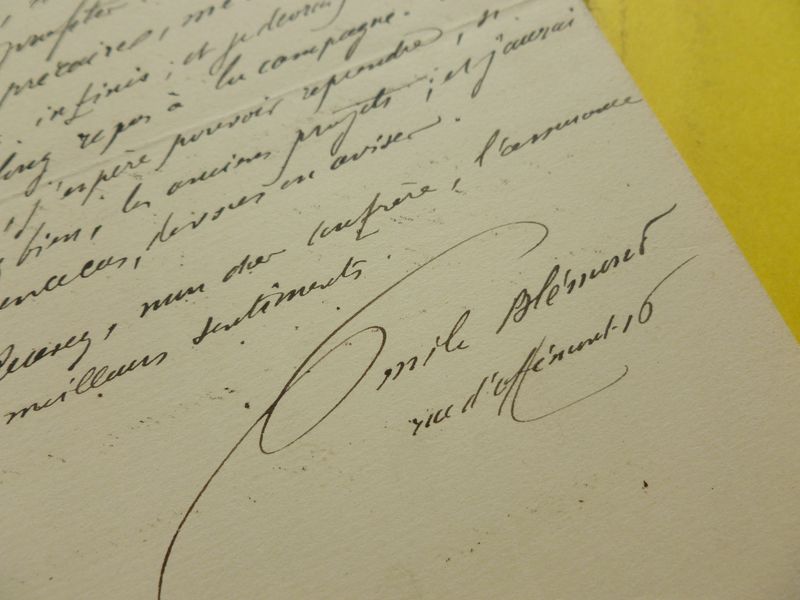 profiter
précaire, me
infinis ; et je devrai
long repos à la campagne.
j'espère pouvoir reprendre, si
bien, les anciens projets ; et j'aurai
en ce cas, devoir en aviser.
mon cher confrère, l'assurance
meilleurs sentiments.
Emile Blémont
rue d'offémont. 16